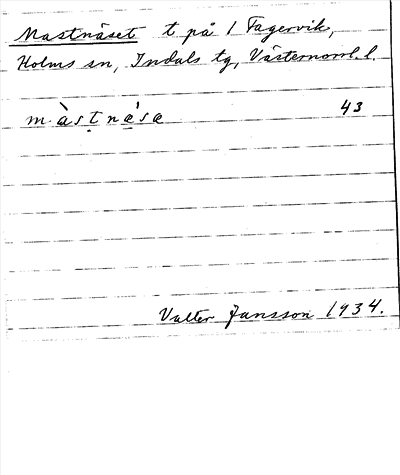 Mastnäset t på 1 Fagervik,
Holms sn, Indals tg, Västernorrl. l.
m àṣṭnǽ'sæ 43
Valter Jansson 1934.